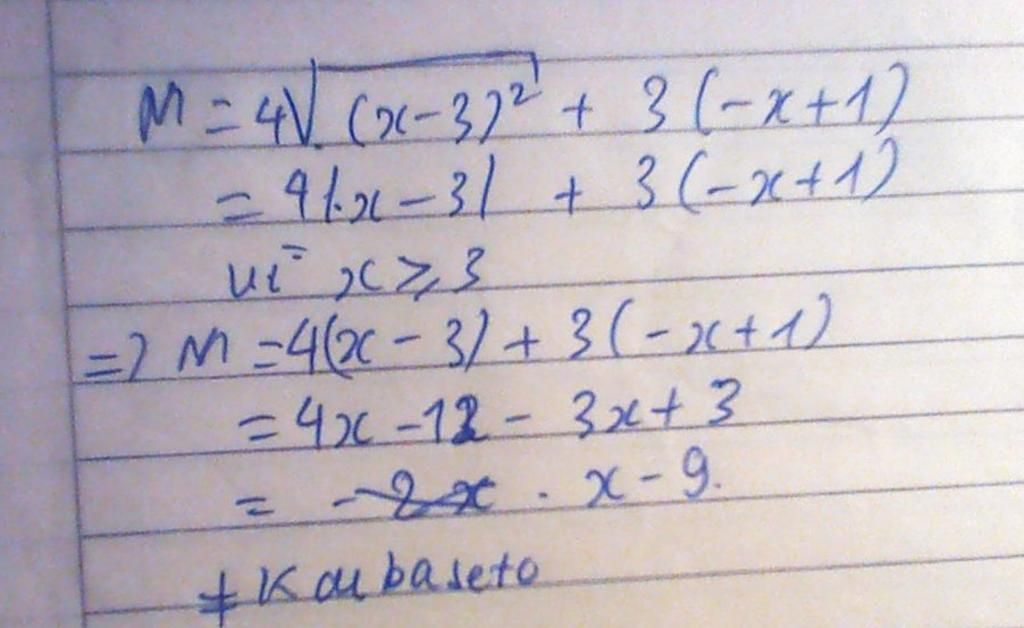 M = 4√(x-3)² + 3(-x+1)
= 4|x-3| + 3(-x+1)
vì x ⩾ 3
=> M = 4(x-3) + 3(-x+1)
= 4x - 12 - 3x + 3
= x - 9.
≠ Kaubaseto